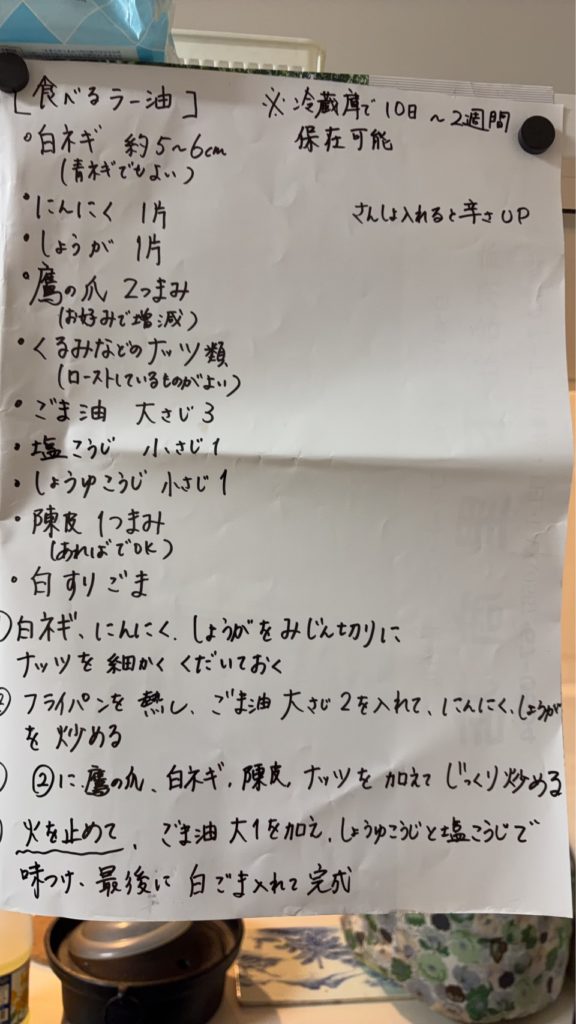 [食べるラー油]
※冷蔵庫で10日～2週間
保存可能
・白ネギ 約5～6cm
(青ネギでもよい)
・にんにく 1片
さんしょ入れると辛さUP
・しょうが 1片
・鷹の爪 2つまみ
(お好みで増減)
・くるみなどのナッツ類
(ローストしているものがよい)
・ごま油 大さじ3
・塩こうじ 小さじ1
・しょうゆこうじ 小さじ1
・陳皮 1つまみ
(あればでOK)
・白すりごま
①白ネギ、にんにく、しょうがをみじん切りに
ナッツを細かくくだいておく
②フライパンを熱し、ごま油 大さじ2を入れて、にんにく、しょうが
を炒める
②に、鷹の爪、白ネギ、陳皮、ナッツを加えてじっくり炒める
火を止めて、ごま油 大1を加え、しょうゆこうじと塩こうじで
味つけ、最後に白ごま入れて完成